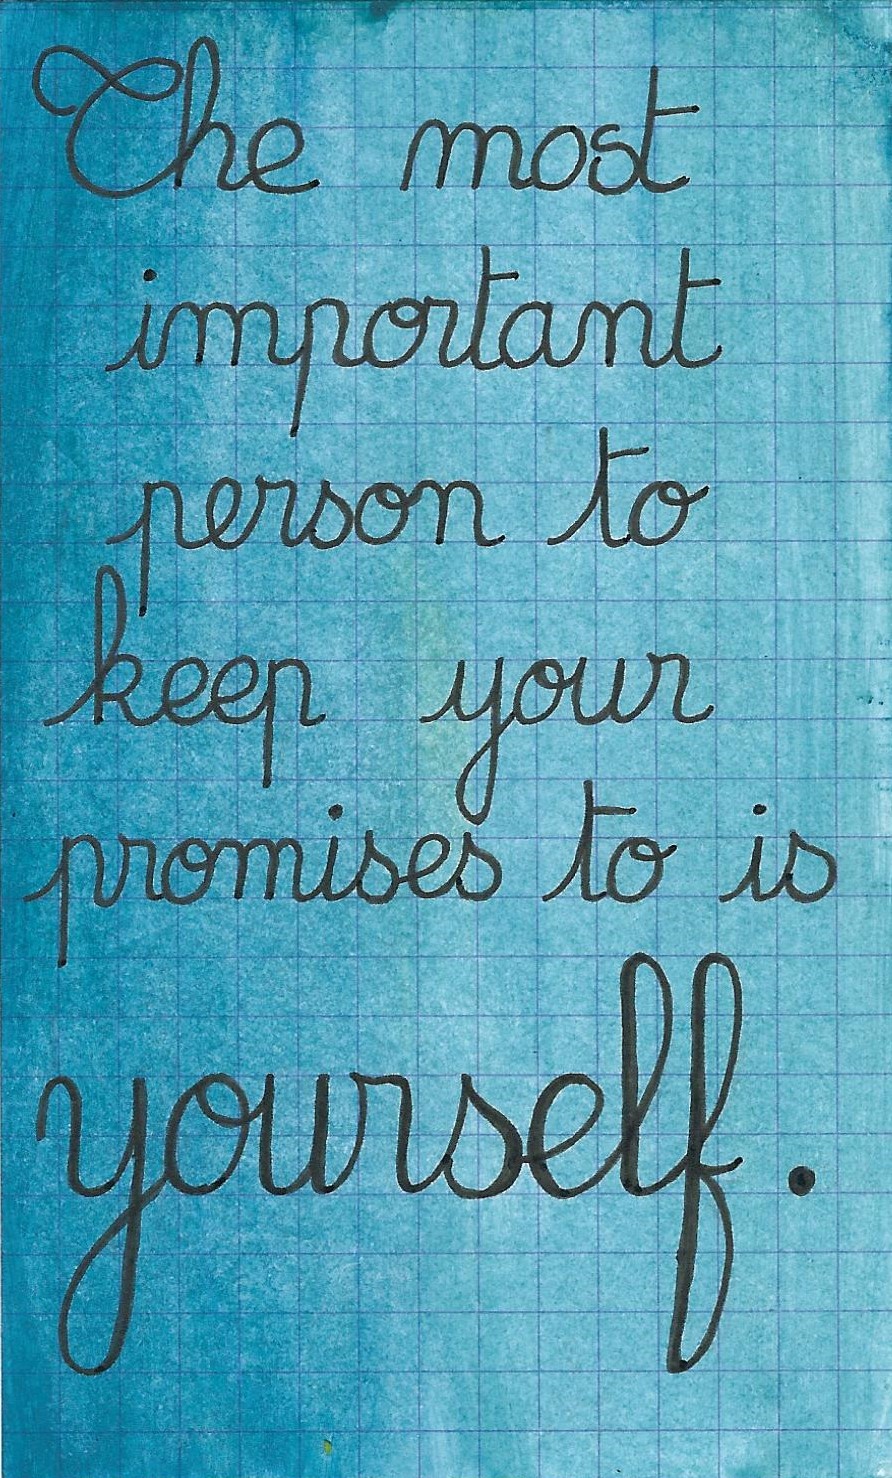 The most
important
person to
keep your
promises to is
yourself.